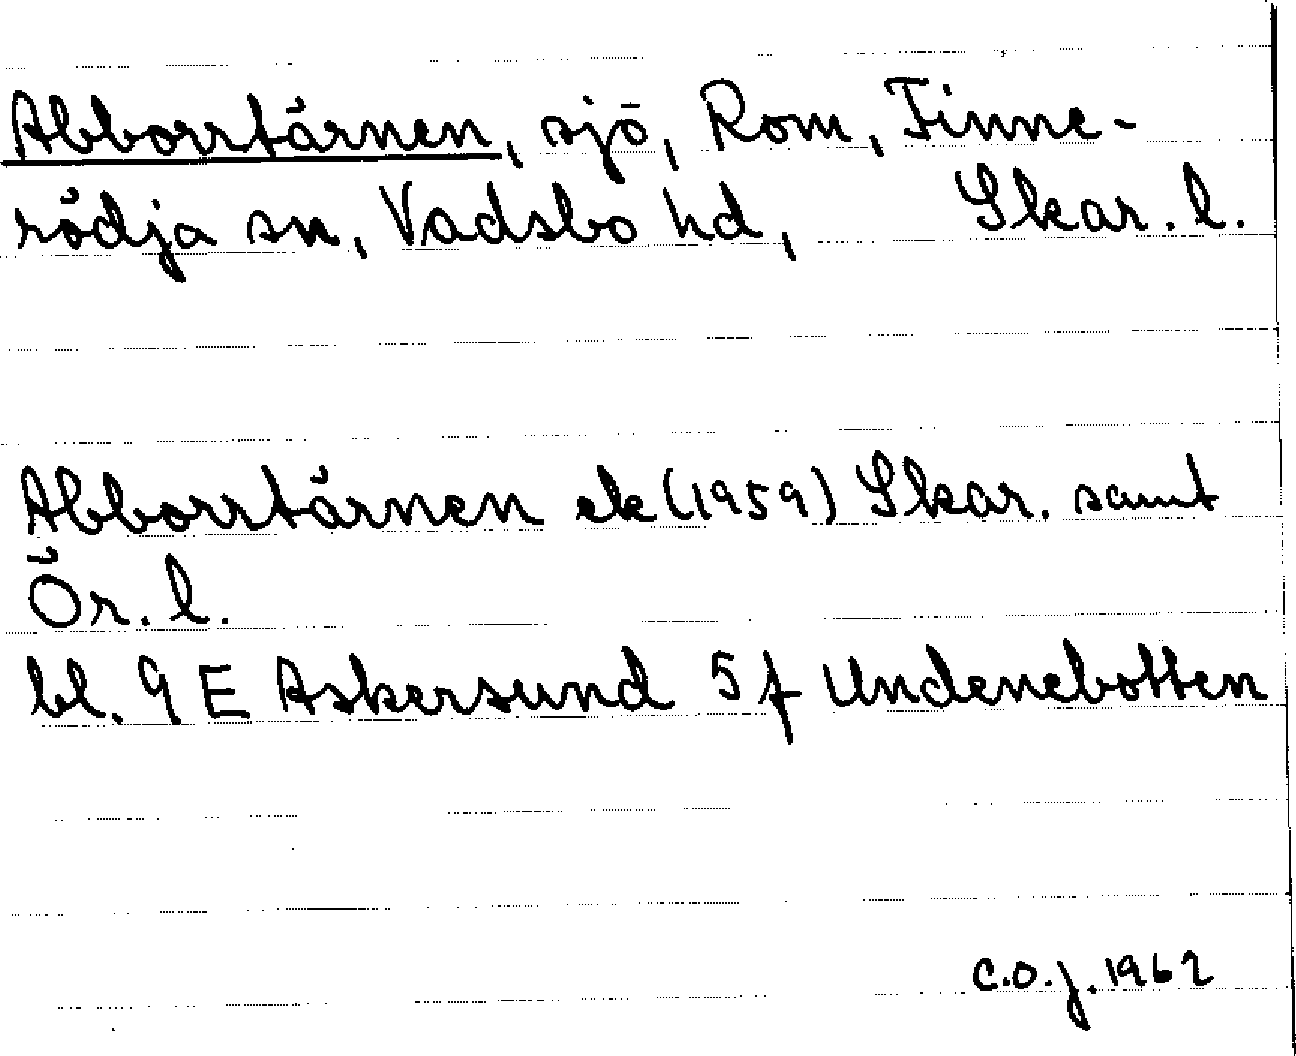 Abborrtärnen, sjö, Rom, Finne-
rödja sn, Vadsbo hd, Skar. l.
Abborrtärnen ek (1959) Skar. samt
Ör. l.
bl. 9 E Askersund 5 f Undenebotten
C.O.J. 1962